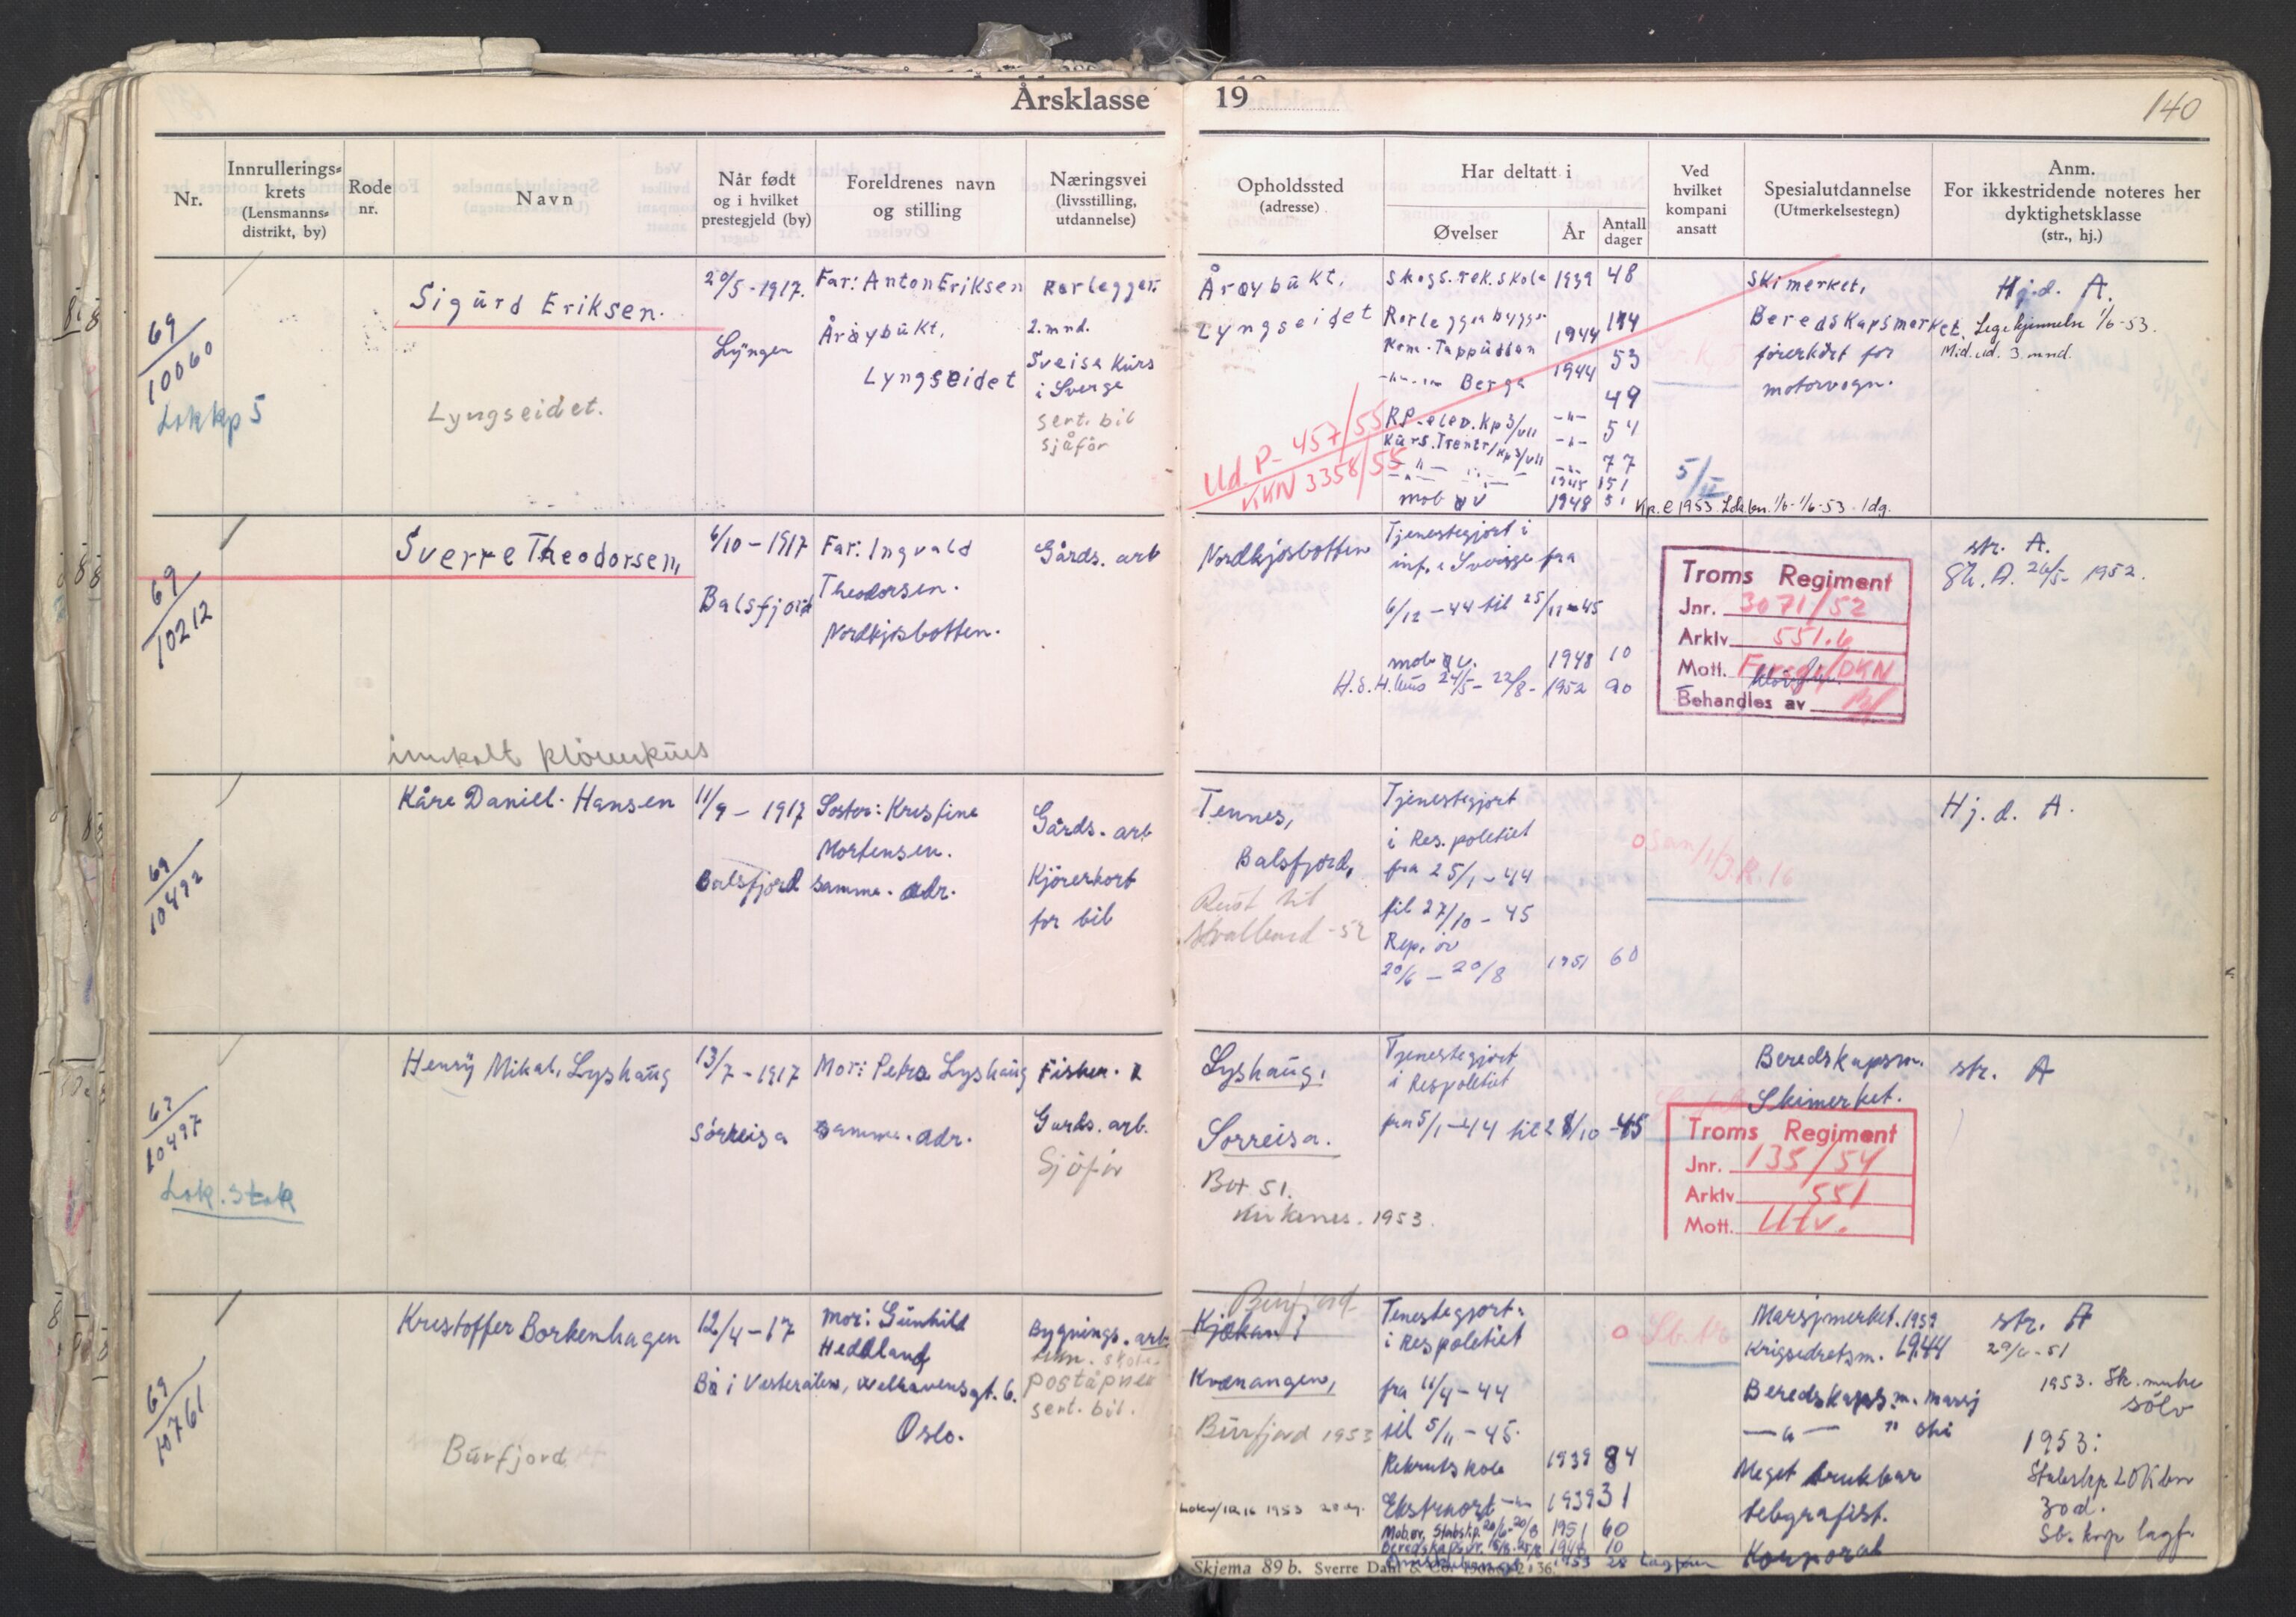 Årsklasse
19
140
Nr.
Innrullerings-
krets
(Lensmanns-
distrikt, by)
Rode
nr.
Navn
Når født
og i hvilket
prestegjeld (by)
Foreldrenes navn
og stilling
Næringsvei
(livsstilling,
utdannelse)
Opholdssted
(adresse)
Har deltatt i
Øvelser
År
Antall
dager
Ved
hvilket
kompani
ansatt
Spesialutdannelse
(Utmerkelsestegn)
Anm.
For ikkestridende noteres her
dyktighetsklasse
(str., hj.)
69/10060
Lok kp 5
Sigurd Eriksen.
Lyngseidet.
20/5-1917.
Lyngen
Far: Anton Eriksen
Årøybukt.
Lyngseidet
Rørlegger.
2. mnd.
Sveise kurs
i Sverge
sert. bil
sjåfør
Årøybukt.
Lyngseidet
Ud. P-457/55
KKN 3358/55
Skogs.rek.skole 1939 48
1944
- " - Berga 1944 53
49
RP. elev. Kp 3/VII - " - 54
- " - 77
1945 151
mob øv 1948 5
5/II
Kp.e 1953 Lok bn. 1/6-1/6-53. 1dg.
Skimerket,
Beredskapsmerket.
førerkort for
motorvogn.
Hj.d. A.
1/6-53.
Mid. ud. 3. mnd.
69/10212
Sverre Theodorsen,
innkalt
6/10-1917
Balsfjord
Far: Ingvald
Theodorsen.
Nordkjosbotten.
Gårds. arb
Nordkjosbotten
Tjenestegjort i
inf. i Sverige fra
6/12-44 til 25/11-45
mob øv. 1948 10
24/5-22/8-1952 90
Troms Regiment
Jnr. 3071/52
Arkiv 551.6
Mott.
Behandles av
str. A.
Sk. A. 26/5-1952.
69/10492
Kåre Daniel. Hansen
11/9-1917
Balsfjord
Søster: Kristine
Mortensen.
samme. adr.
Gårds. arb
Kjörerkort
for bil
Tennes,
Balsfjord,
Reist til
Svalbard -52
Tjenestegjort
i Res. politiet
fra 25/1-44
til 27/10-45
Rep. øv
20/6-20/8 1951 60
Hj. d. A.
10497
Lok. Stab
Henry Mikal. Lyshaug
13/7-1917
Sörreisa
Mor: Petra Lyshaug
samme. adr.
Fisker.
Gårds. arb.
Sjåför
Lyshaug.
Sørreisa.
Box 51.
Kirkenes. 1953.
Tjenestegjort
i Respolitiet
fra 5/1-44 til 28/10-45
Beredskapsm.
Skimerket.
Troms Regiment
Jnr. 135/54
Arkiv 551
Mott. Utv.
str. A
69/10761
Kristoffer Borkenhagen
Burfjord
12/4-17
Bø i Vesterålen,
Mor: Gunhild
Hedbland
Welhavensgt. 6.
Oslo.
Bygnings. arb.
poståpner
sert. bil.
Burfjord
Kjækan i
Kvænangen,
Burfjord 1953
Tenestegjort.
i Respolitiet
fra 11/4-44
til 5/11-45.
Rekrutskole 1939 84
1939 31
Mob.øv. Stabskp. 20/6-20/8 1951 60
10
1953 28
Marsjmerket. 1939
Krigsidretsm. 1944
Beredskaps.m. marsj
- " - " ski
Meget brukbar
telegrafist.
Korporal
str. A
1953. Sk. merke
sölv
1953:
Stabskp LOK bn
30 d.
Skjema 89 b. Sverre Dahl & Co.